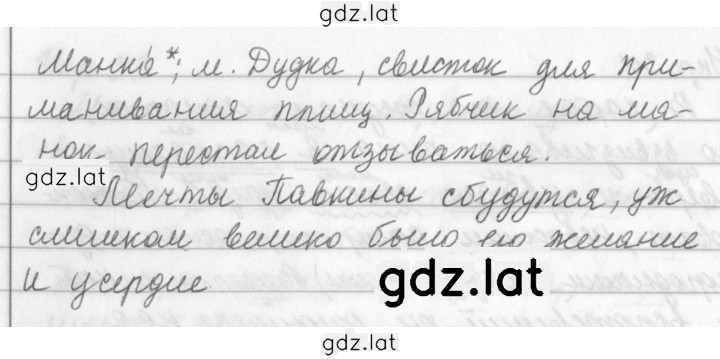 gdz.lat
Манка́*, м. Дудка, свисток для при-
манивания птиц. Рябчик на ма-
нок перестал отзываться.
gdz.lat
Мечты Павкины сбудутся, уж
слишком велико было его желание
и усердие
gdz.lat
gdz.lat